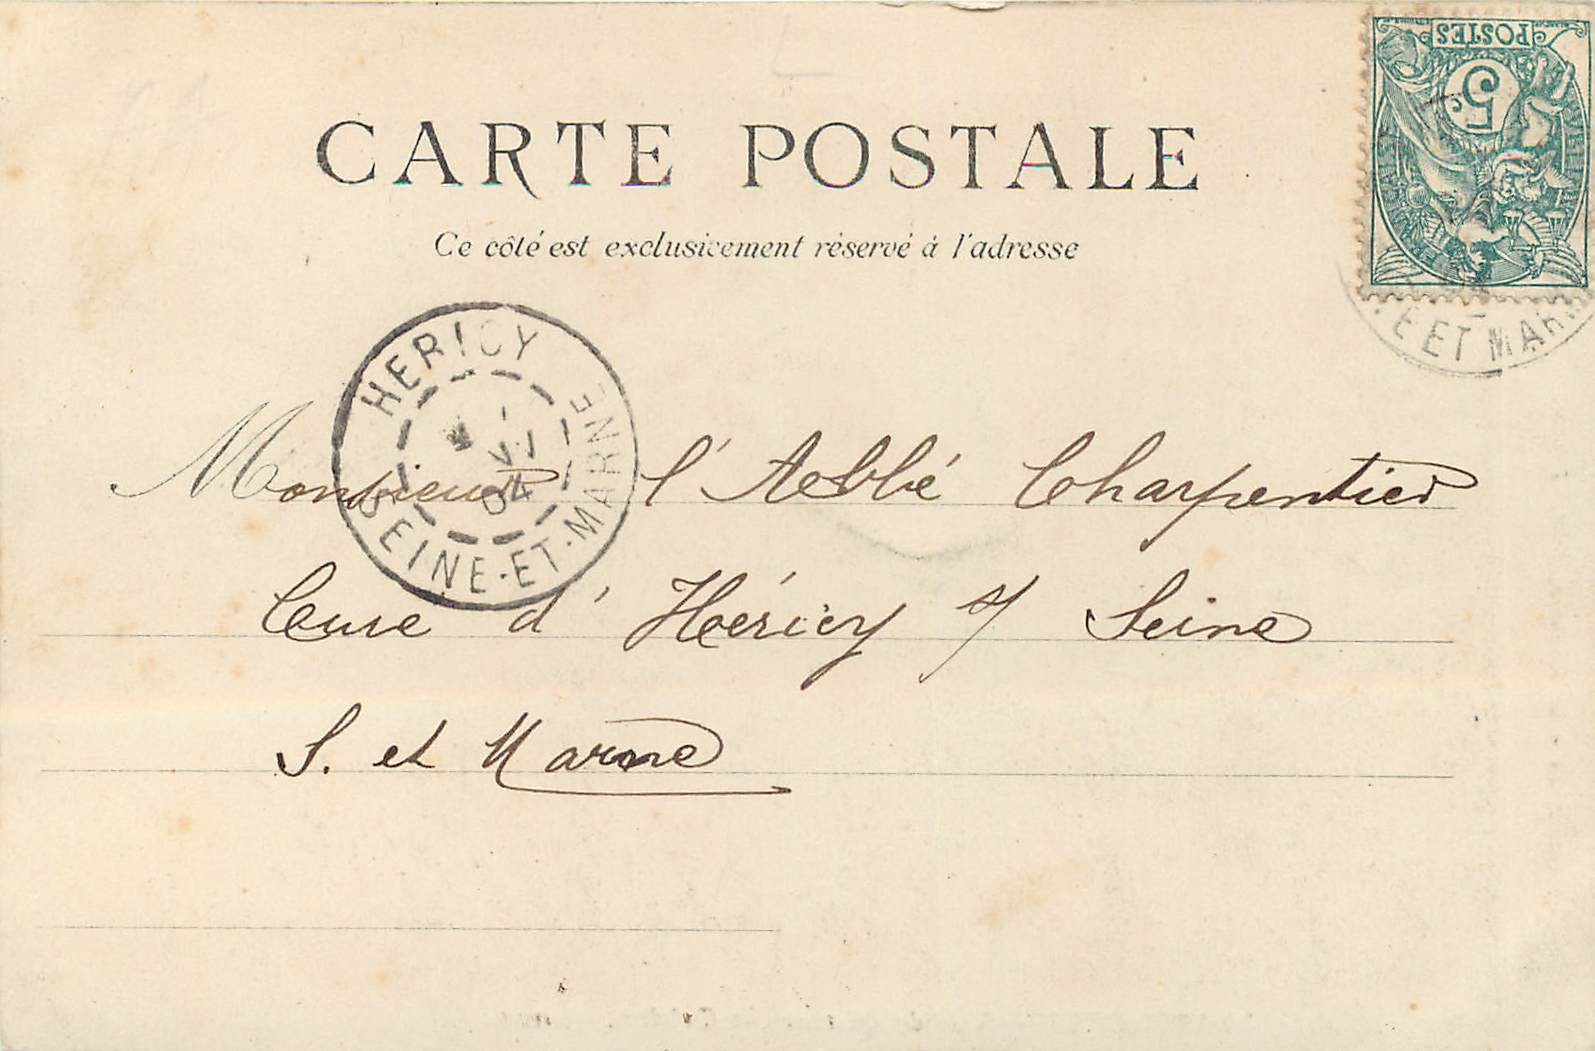 CARTE POSTALE
Ce côté est exclusivement réservé à l'adresse
POSTES
5c
E ET MAR
HERICY
VI
04
SEINE-ET-MARNE
Monsieur l'Abbé Charpentier
Curé d'Héricy s/ Seine
S. et Marne